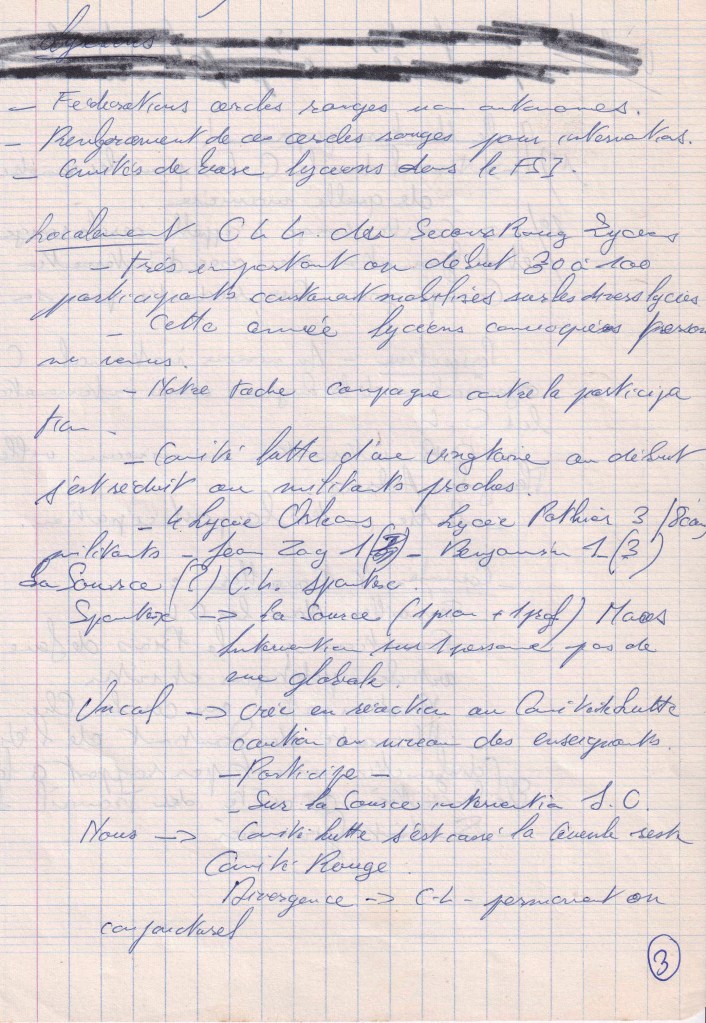 Lycéens
- Fédérations cercles rouges non autonomes.
- Renforcement de ces cercles rouges pour interventions.
- Comités de base lycéens dans le FSI.
Localement C.L.L. du Secours Rouge Lycéens
- très important au début 30 à 100
participants constamment mobilisés sur les divers lycées
- Cette année lycéens convoqués person
ne venus.
- Notre tâche campagne contre la participa
tion -
- Comité lutte d'une vingtaine au début
s'est réduit aux militants proches.
- 4 Lycées Orléans - Lycée Pothier 3
militants - Jean Zay 1 - Benjamin 1 (3)
La Source (?) C.L. spontex
Spontex -> La Source (1 pion + 1 prof) Maos
Intervention sur 1 personne pas de
vue globale.
Uncal -> créé en réaction au Comité de lutte
caution au niveau des enseignants.
- Participe -
- Sur la Source intervention J.C.
Nous -> Comité lutte s'est cassé la gueule reste
Comité Rouge.
Divergence -> C.L. permanent ou
conjoncturel
3